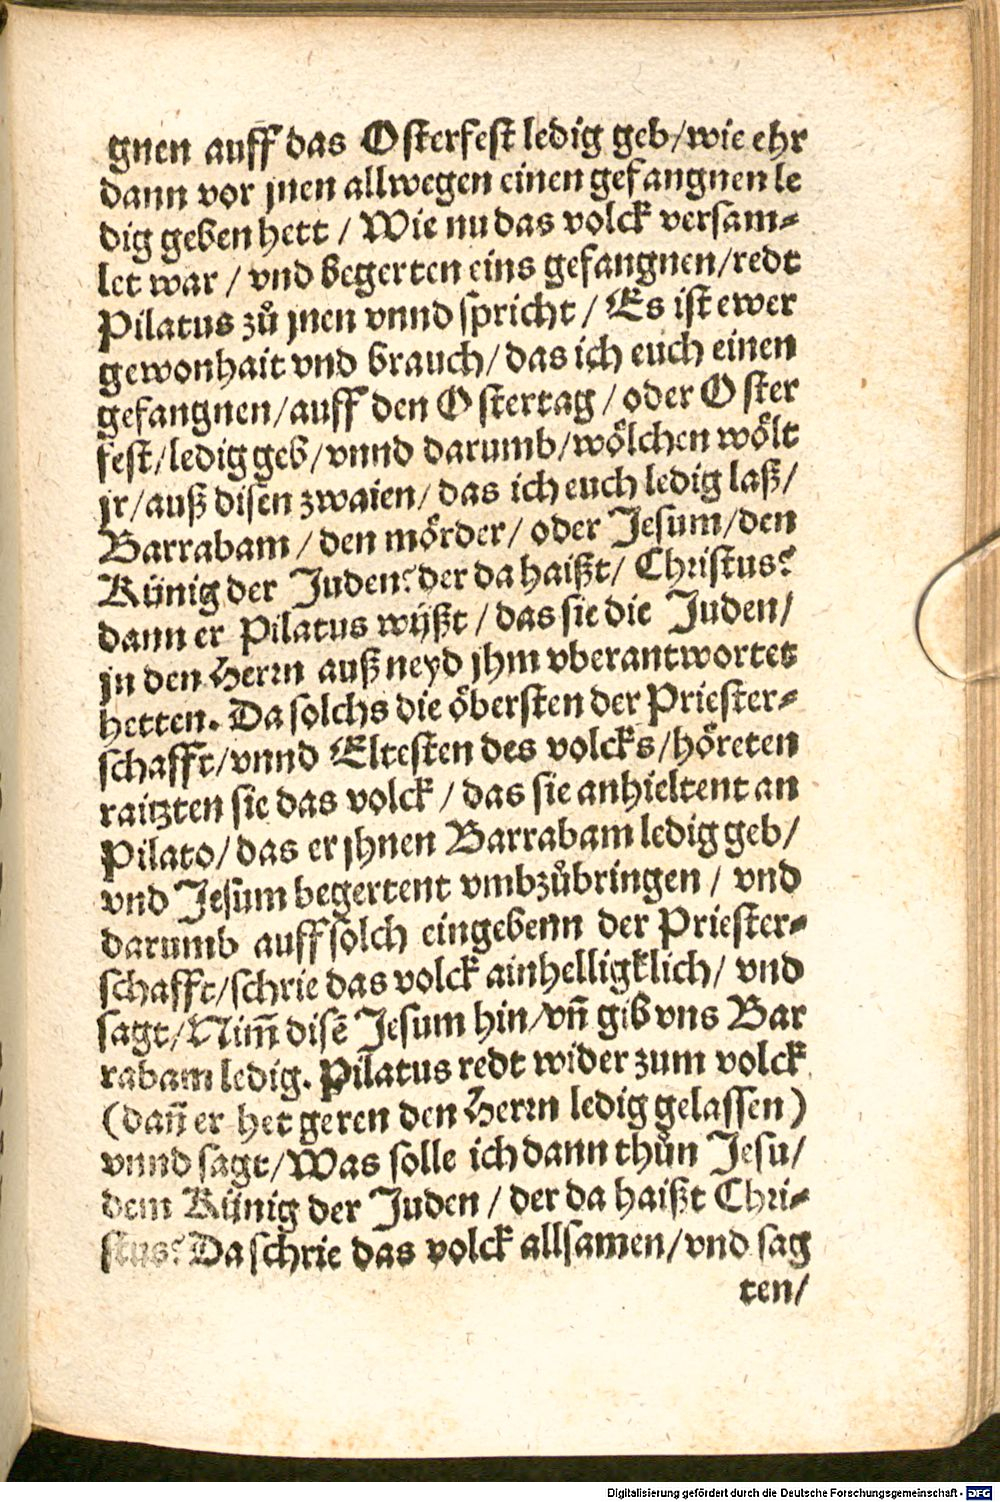 gnen auff das Osterfest ledig geb/wie ehr
dann vor jnen allwegen einen gefangnen le
dig geben hett / Wie nu das volck versam⸗
let war / vnd begerten eins gefangnen/redt
Pilatus zů jnen vnnd spricht / Es ist ewer
gewonhait vnd brauch/ das ich euch einen
gefangnen/auff den Ostertag / oder Oster
fest/ledig geb/vnnd darumb/woͤlchen woͤlt
jr/auß disen zwaien/ das ich euch ledig laß/
Barrabam / den moͤrder/ oder Jesum/den
Künig der Juden? der da haißt/ Christus?
dann er Pilatus wÿßt / das sie die Juden/
jn den Herrn auß neyd jhm vberantwortet
hetten. Da solchs die oͤbersten der Priester⸗
schafft/vnnd Eltesten des volcks/hoͤreten
raitzten sie das volck / das sie anhieltent an
Pilato/das er jhnen Barrabam ledig geb/
vnd Jesum begertent vmbzůbringen / vnd
darumb auff solch eingebenn der Priester⸗
schafft/schrie das volck ainhelligklich/ vnd
sagt/Nim̃ disẽ Jesum hin/vñ gib vns Bar
rabam ledig. Pilatus redt wider zum volck
(dañ er het geren den Herrn ledig gelassen)
vnnd sagt/Was solle ich dann thůn Jesu/
dem Künig der Juden / der da haißt Chri⸗
stus? Da schrie das volck allsamen/vnd sag
ten/
Digitalisierung gefördert durch die Deutsche Forschungsgemeinschaft - DFG